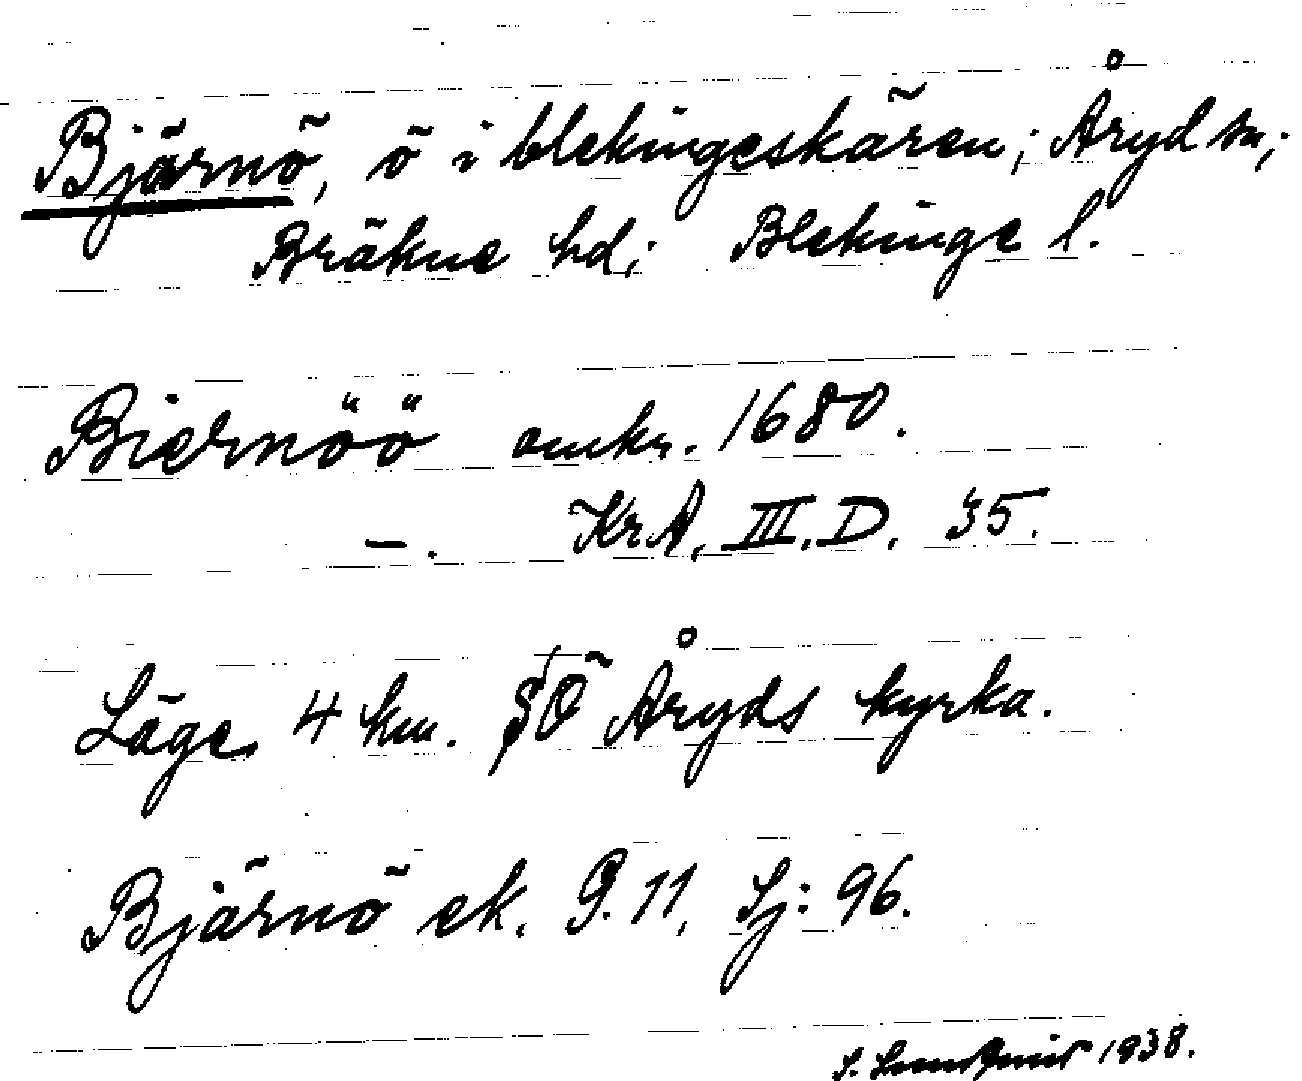 Bjärnö, ö i blekingeskären; Åryd sn;
Bräkne hd; Blekinge l.
Biernöö omkr. 1680.
–. KrA, III.D, 35.
Läge 4 km. SÖ Åryds kyrka.
Bjärnö ek. G. 11, Sj: 96.
S. 1938.